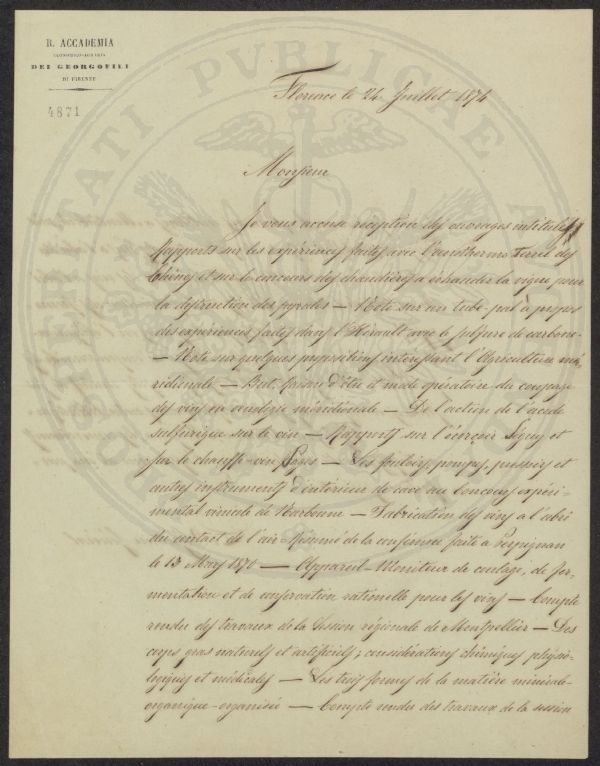 R. ACCADEMIA
ECONOMICO-AGRARIA
DEI GEORGOFILI
DI FIRENZE
4871
Florence le 24 Juillet 1874
Monsieur
Je vous accuse réception des ouvrages intitulés
Rapports sur les expériences faites avec l'œnotherme Terrel des
Chênes et sur le concours des chaudières à échauder la vigne pour
la destruction des pyrales — Note sur un tube-pal à propos
des expériences faites dans l'Hérault avec le sulfure de carbone
— Note sur quelques propositions intéressant l'Agriculture mé-
ridionale — But, raison d'être et mode opératoire du coupage
des vins en œnologie méridionale — De l'action de l'acide
sulfurique sur le vin — Rapports sur l'écorçoir Signy et
sur le chauffe-vin — Les fouloirs, pompes, pressoirs et
autres instruments d'intérieur de cave au Concours expéri-
mental vinicole de Narbonne — Fabrication des vins à l'abri
du contact de l'air - Résumé de la conférence faite à Perpignan
le 13 Mars 1870 — Appareil-Moniteur de cuvage, de fer-
mentation et de conservation rationelle pour les vins — Compte
rendu des travaux de la Session régionale de Montpellier — Des
corps gras naturels et artificiels; considérations chimiques, physio-
logiques et médicales — Les trois formes de la matière minérale-
organique-organisée — Compte rendu des travaux de la session